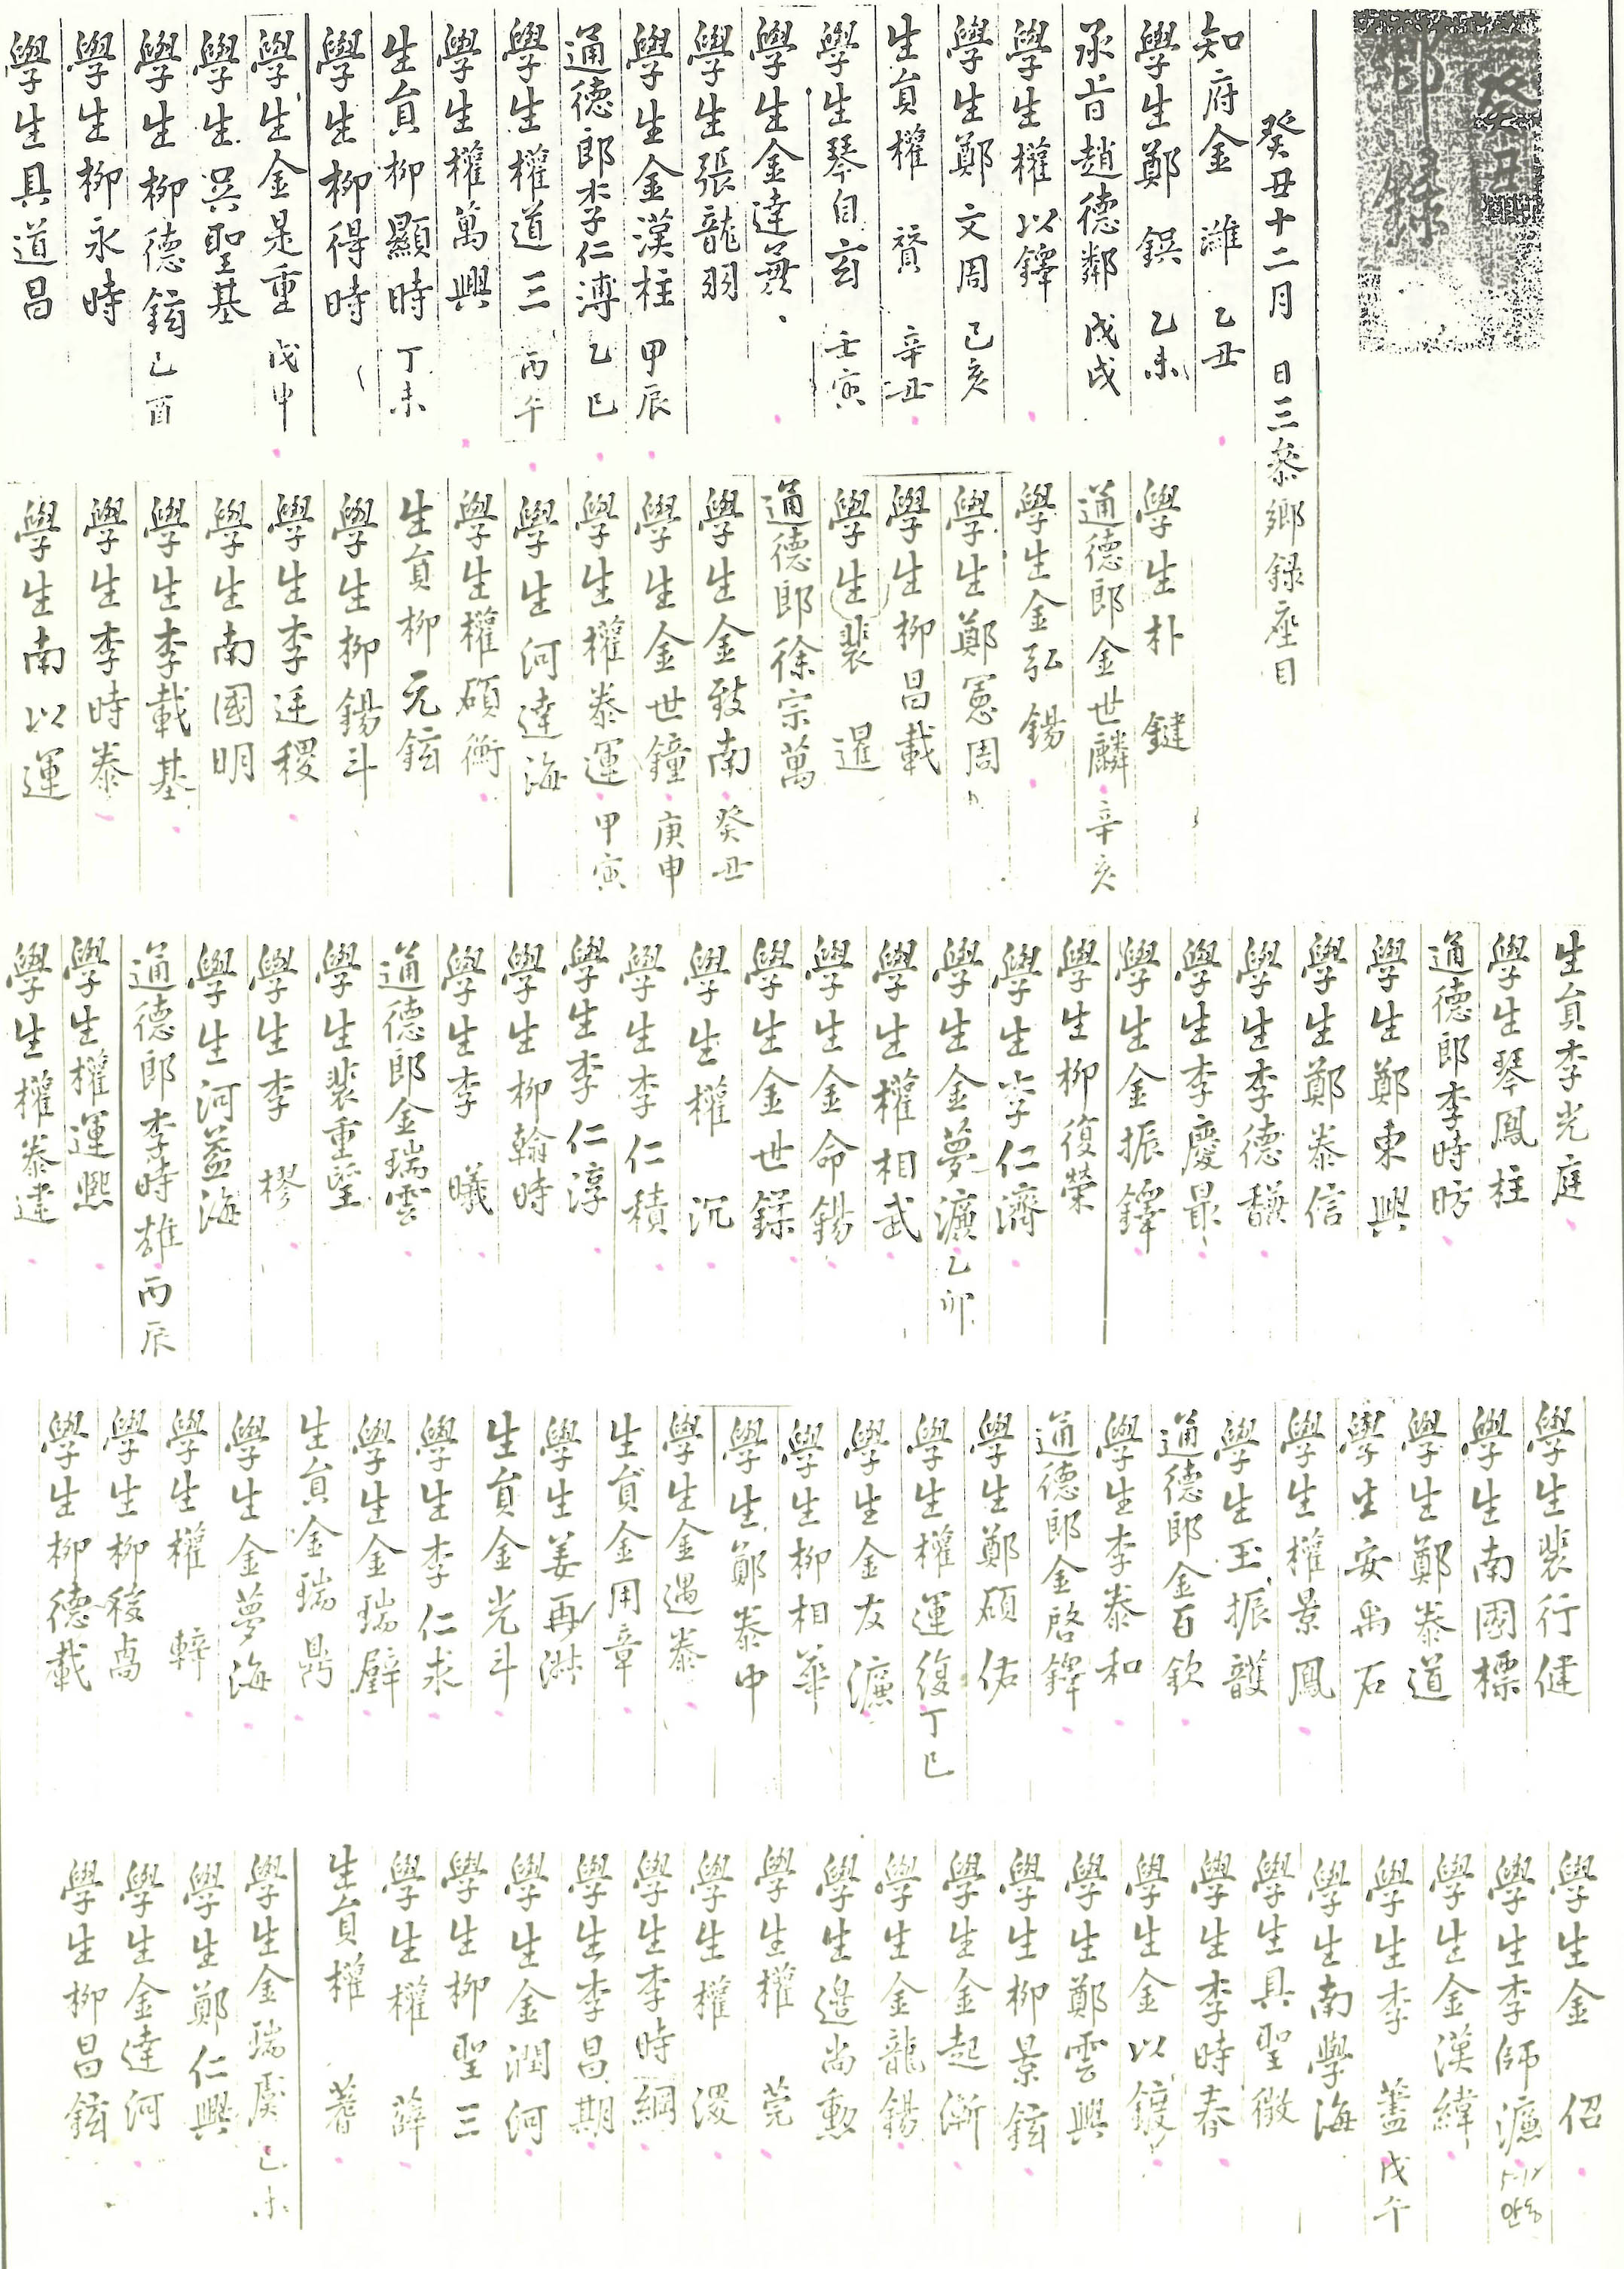 癸丑
鄉錄
癸丑十二月 日三參鄉錄座目
知府金 濰 乙丑
學生鄭 鍈 乙未
承旨趙德鄰 戊戌
學生權以鐸
學生鄭文周 己亥
生員權 贇 辛丑
學生琴自玄 壬寅
學生金達兼
學生張龍羽
學生金漢柱 甲辰
通德郎李仁溥 乙巳
學生權道三 丙午
學生權萬興
生員柳顯時 丁未
學生柳得時
學生金是重 戊申
學生吳聖基
學生柳德鉉 己酉
學生柳永時
學生具道昌
學生朴 鍵
通德郎金世麟 辛亥
學生金弘錫
學生鄭憲周
學生柳昌載
學生裴 暹
通德郎徐宗萬
學生金致南 癸丑
學生金世鐘 庚申
學生權泰運 甲寅
學生河達海
學生權碩衡
生員柳元鉉
學生柳錫斗
學生李廷稷
學生南國明
學生李載基
學生李時泰
學生南以運
生員李光庭
學生琴鳳柱
通德郎李時昉
學生鄭東興
學生鄭泰信
學生李德馦
學生李慶最
學生金振鐸
學生柳復榮
學生李仁濟
學生金夢濂 乙卯
學生權相武
學生金命錫
學生金世鎵
學生權 沉
學生李仁積
學生李仁淳
學生柳翰時
學生李 曦
通德郎金瑞雲
學生裴重望
學生李 樛
學生河益海
通德郎李時雄 丙辰
學生權運熙
學生權泰建
學生裴行健
學生南國標
學生鄭泰道
學生安禹石
學生權景鳳
學生玉振頀
通德郎金百欽
學生李泰和
通德郎金啓鐸
學生鄭碩佑
學生權運復 丁巳
學生金友濂
學生柳相華
學生鄭泰中
學生金遇泰
生員金用章
學生姜再淋
生員金光斗
學生李仁求
學生金瑞璧
生員金瑞鼎
學生金夢海
學生權 鞥
學生柳稷卨
學生柳德載
學生金 侶
學生李師濂
學生金漢緯
學生李 藎 戊午
學生南學海
學生具聖徵
學生李時春
學生金以鍍
學生鄭雲興
學生柳景鉉
學生金起漸
學生金龍錫
學生邊尚勳
學生權 莞
學生權 漫
學生李時綱
學生李昌期
學生金潤河
學生柳聖三
學生權 薛
生員權 蓍
學生金瑞虞 己未
學生鄭仁興
學生金達河
學生柳昌鉉